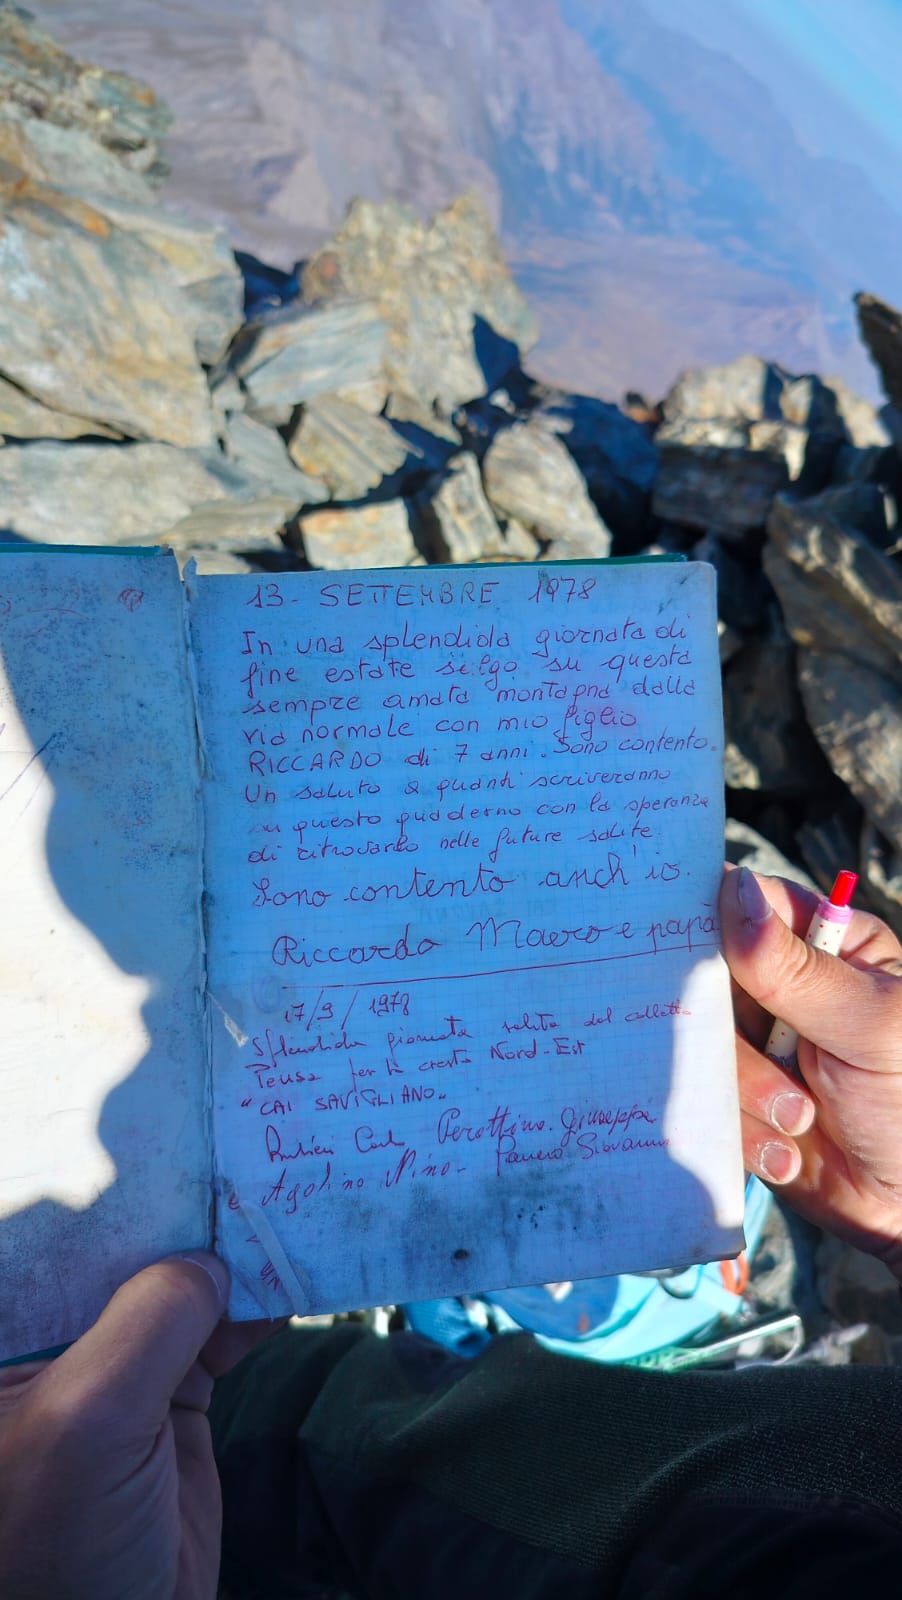 13 - SETTEMBRE 1978
In una splendida giornata di
fine estate salgo su questa
sempre amata montagna dalla
via normale con mio figlio
RICCARDO di 7 anni. Sono contento.
Un saluto a quanti scriveranno
su questo quaderno con la speranza
di ritrovarlo nelle future salite.
Sono contento anch'io.
Riccardo Mauro e papà
17/9/1978
Splendida giornata salita dal colletto
per la cresta Nord-Est
"CAI SAVIGLIANO"
Perottino Giuseppe
e Agolino Nino - Giovanni